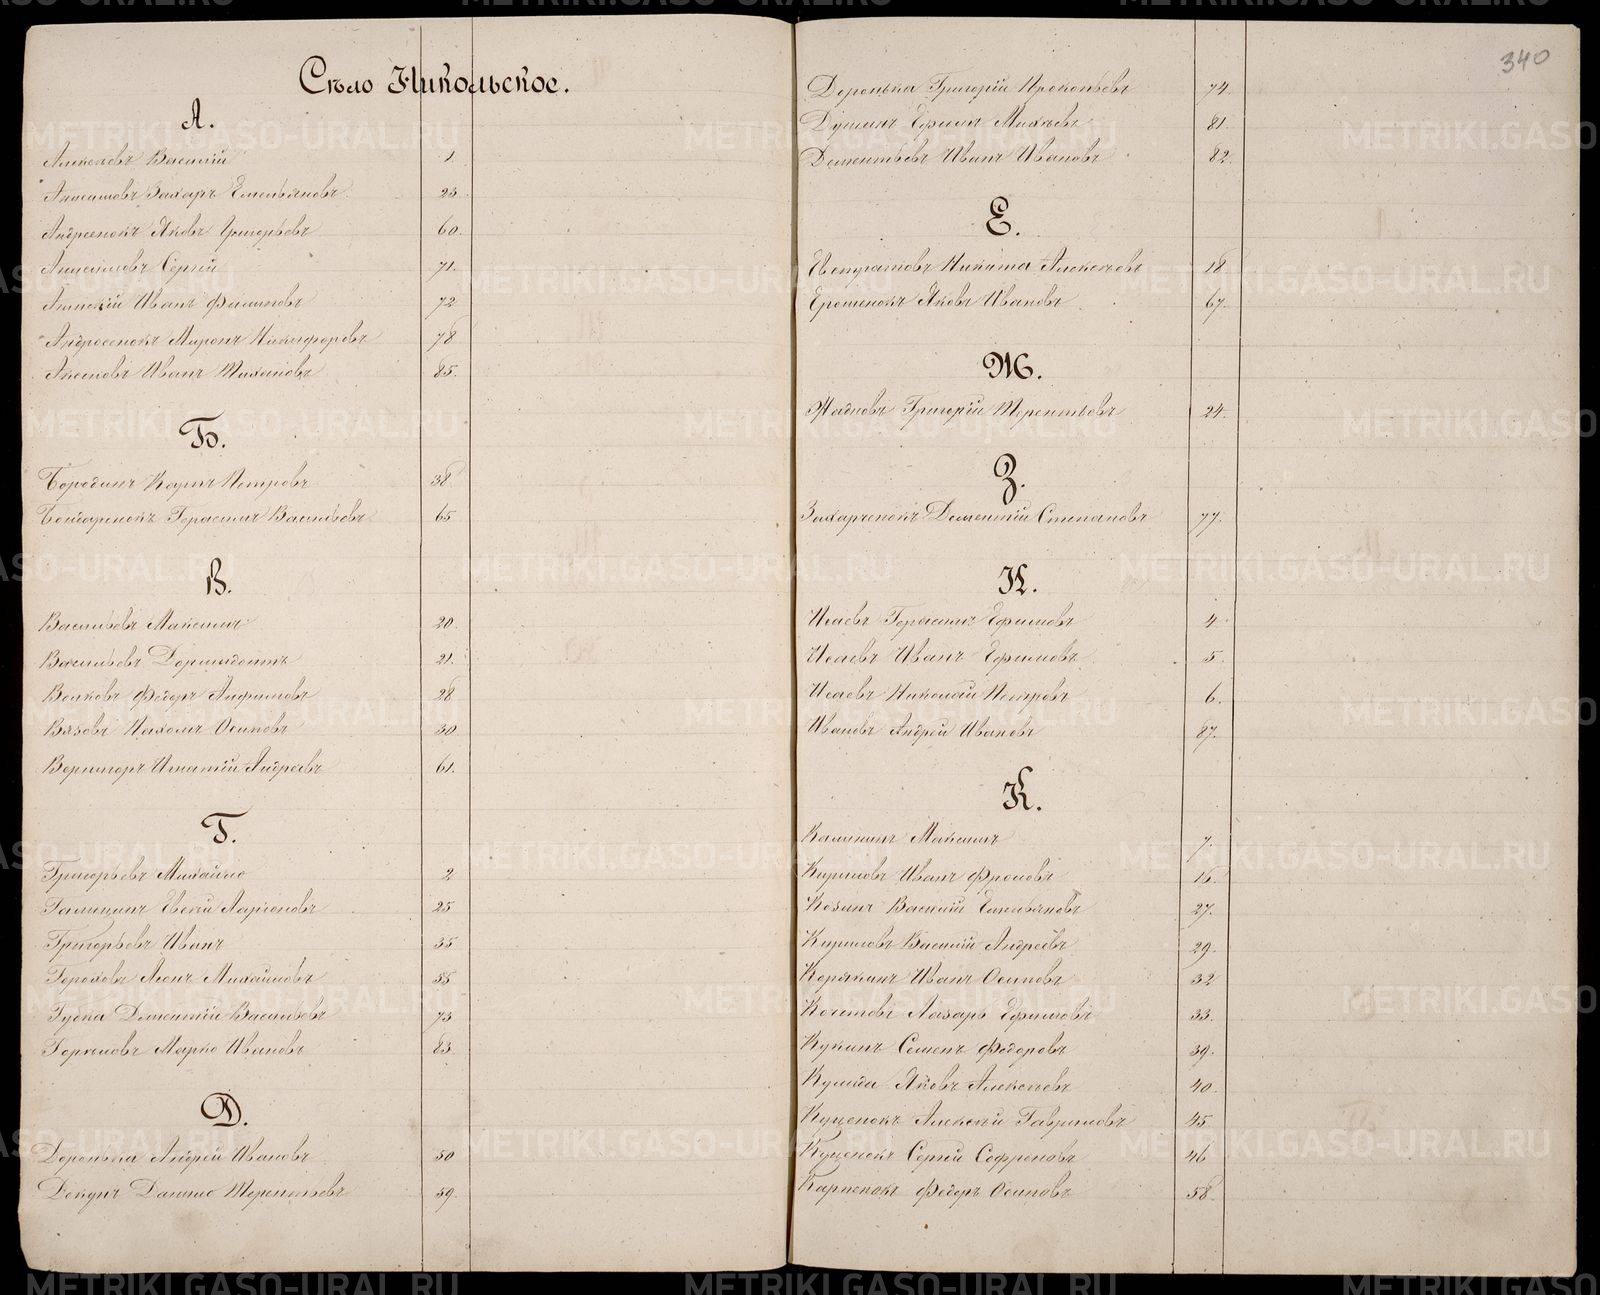 Село Никольское.
А.
Алексѣевъ Василій 1
Анисимовъ Захаръ Емельяновъ 23
Андреенокъ Яковъ Григорьевъ 60.
Анисимовъ Сергѣй 71.
Иванъ Филиповъ 72
Андросенокъ Миронъ Никифоровъ 78
Аксеновъ Иванъ 85.
Б.
Бородинъ Карпъ Петровъ 38
Герасимъ Васильевъ 65
В.
Васильевъ Максимъ 20
Васильевъ Дормидонтъ 21.
Волковъ Федоръ Анфимовъ 28
Вязовъ Пахомъ Осиповъ 30
Вернигоръ Игнатій Андреевъ 61.
Г.
Григорьевъ Михайло 2
Галицинъ Евсѣй Ларіоновъ 25
Григорьевъ Иванъ 35
Гороховъ Михайловъ 55
Губка Дементій Васильевъ 73
Марко Ивановъ 83
Д.
Доронька Андрей Ивановъ 50
Данило Терентьевъ 59.
340
Доронька Григорій Прокопьевъ 74.
Ефимъ 81.
Дементьевъ Иванъ Ивановъ 82.
Е.
Никита Алексѣевъ 18
Ерошенокъ Яковъ Ивановъ 67.
Ж.
Жадновъ Григорій Терентьевъ 24.
З.
Захарченокъ Дементій Степановъ 77.
И.
Исаевъ Герасимъ Ефимовъ 4
Исаевъ Иванъ Ефимовъ 5.
Исаевъ Николай Петровъ 6.
Ивановъ Андрей Ивановъ 87.
К.
Калининъ Максимъ 7.
Кириловъ Иванъ Фроловъ 16.
Козинъ Василій Емельяновъ 27.
Кириловъ Василій Андреевъ 29.
Корякинъ Иванъ Осиповъ 32
Кочетовъ Лазарь Ефимовъ 33.
Кукинъ Семенъ Федоровъ 39.
Яковъ Алексѣевъ 40.
Куценокъ Алексѣй Гавриловъ 45
Куценокъ Сергѣй Софроновъ 46
Карпенокъ Федоръ Осиповъ 58.
METRIKI.GASO-URAL.RU